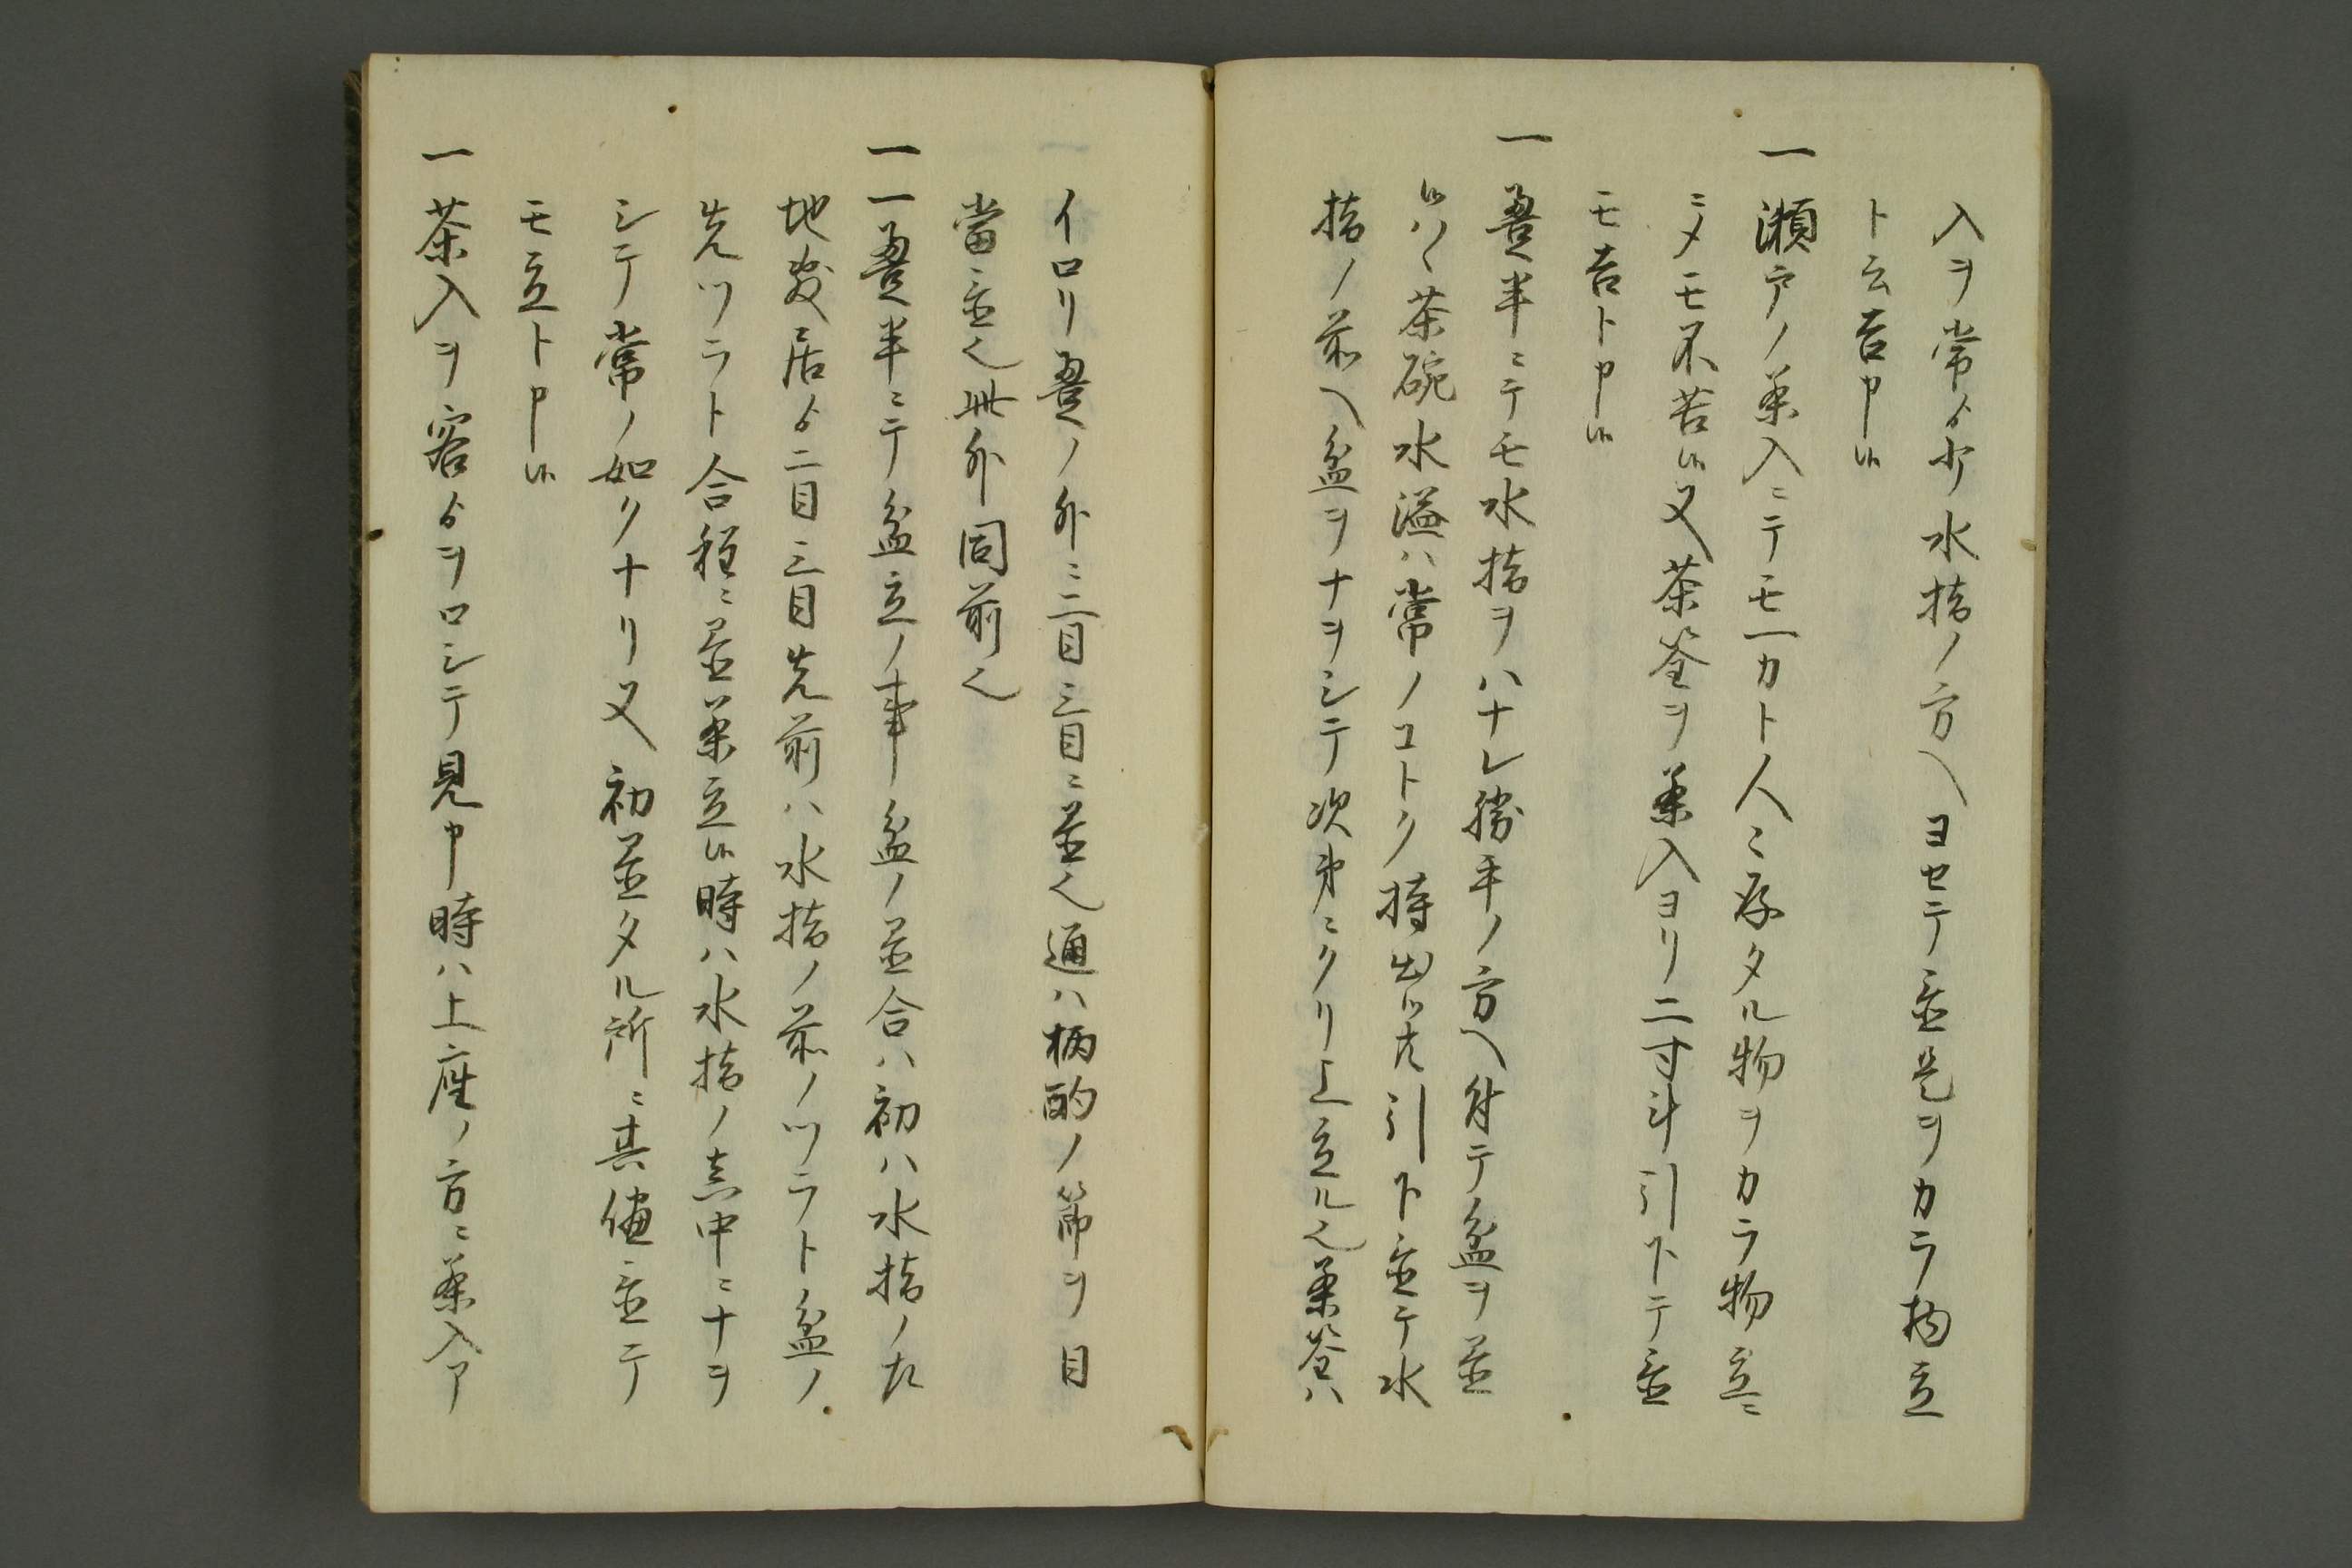 入ヲ常ゟ少水指ノ方ヘヨセテ置是ヲカラ物立
ト云吉申候
一瀬戸ノ茶入ニテモ一カト人ニ存タル物ヲカラ物立ニ
ニメモ不苦候又茶筌ヲ茶入ヨリ二寸斗引下テ置
モ吉ト申候
一畳半ニテモ水指ヲハナレ勝手ノ方ヘ付テ盆ヲ置
候ハヽ茶碗水溢ハ常ノコトク持出シ引下置テ水
指ノ前ヘ盆ヲナヲシテ次第ニクリ上立ル也茶筌ハ
イロリ畳ノ外ニ二目三目ニ置也通ハ柄酌ノ節ヲ目
當置也此外同前也
一一畳半ニテ盆立ノ事盆ノ置合ハ初ハ水指ノ左
地敷居ゟ二目三目先前ハ水指ノ前ノツラト盆ノ
先ツラト合程ニ置茶立候時ハ水指ノ真中ニナヲ
シテ常ノ如クナリ又初置タル所ニ其儘置テ
モ立ト申候
一茶入ヲ客ゟヲロシテ見申時ハ上座ノ方ニ茶入ア